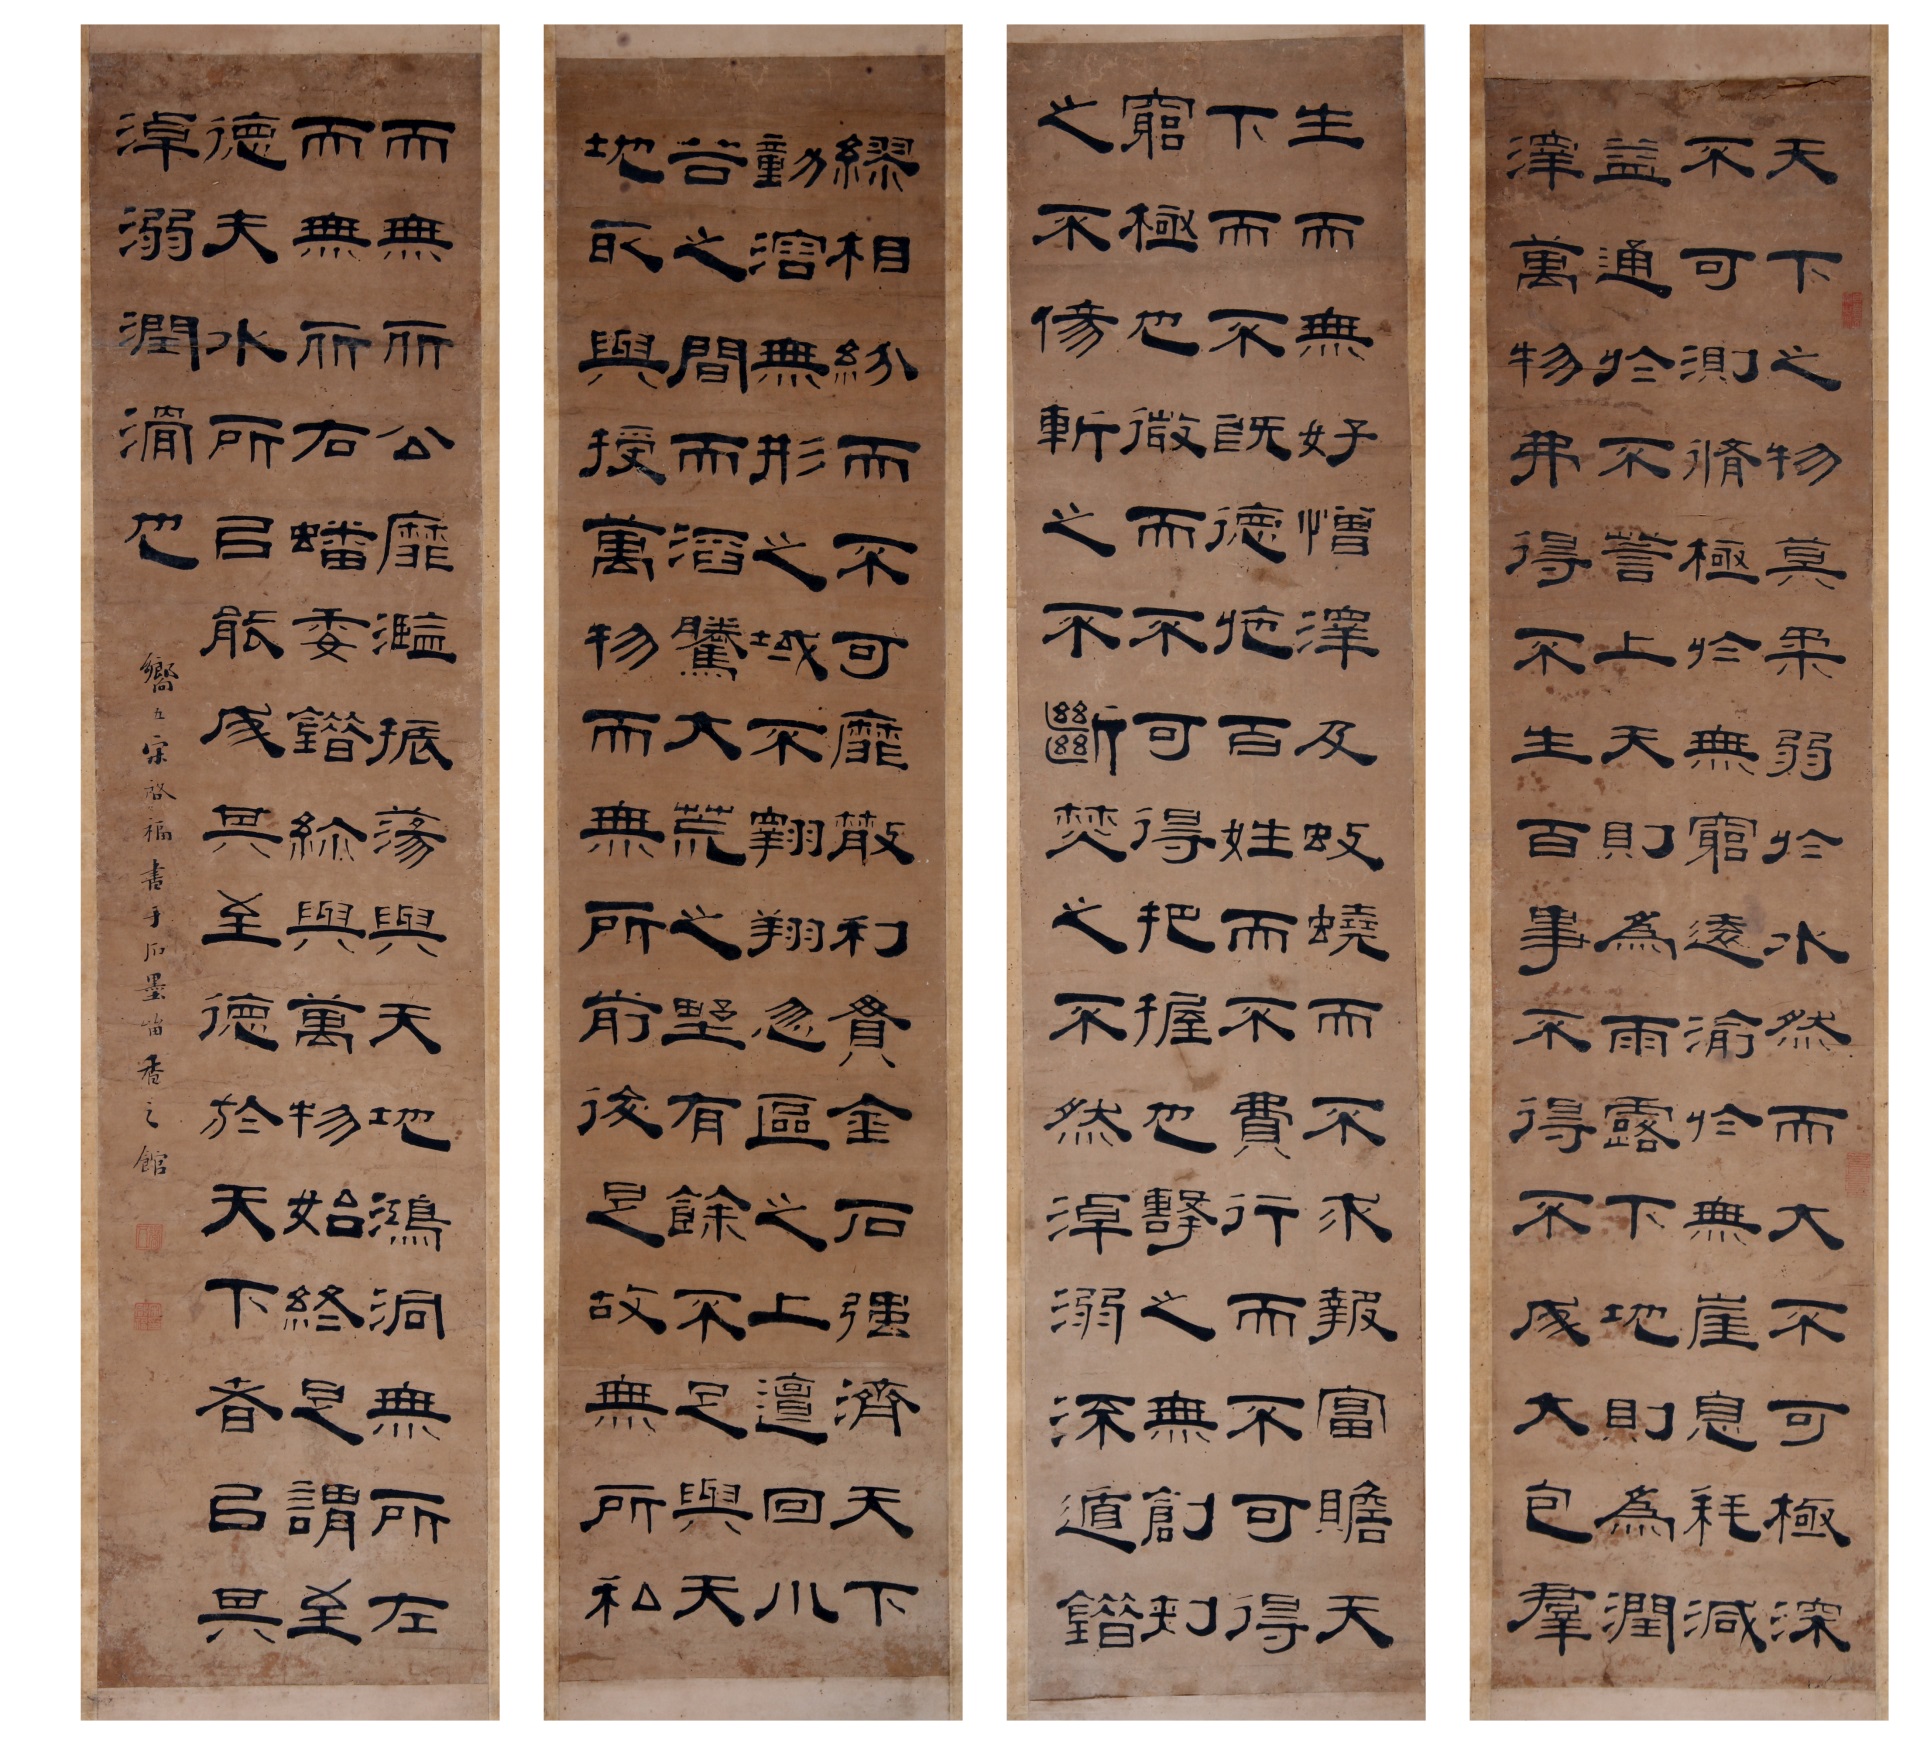 天下之物莫柔弱於水然而大不可極深
不可測脩極於無窮遠淪於無崖息耗減
益通於不訾上天則為雨露下地則為潤
澤萬物弗得不生百事不得不成大包羣
生而無好憎澤及蚑蟯而不求報富贍天
下而不既德施百姓而不費行而不可得
窮極也微而不可得把握也擊之無創刺
之不傷斬之不斷焚之不然淖溺流遁錯
繆相紛而不可靡散利貫金石強濟天下
動溶無形之域不翱翔忽區之上邅回川
谷之間而滔騰大荒之墅有餘不足與天
地取與授萬物而無所前後是故無所私
而無所公靡濫振蕩與天地鴻洞無所左
而無所右蟠委錯紾與萬物始終是謂至
德夫水所以能成其至德於天下者以其
淖溺潤滑也
嚮五宋啓福書于石墨留香之館